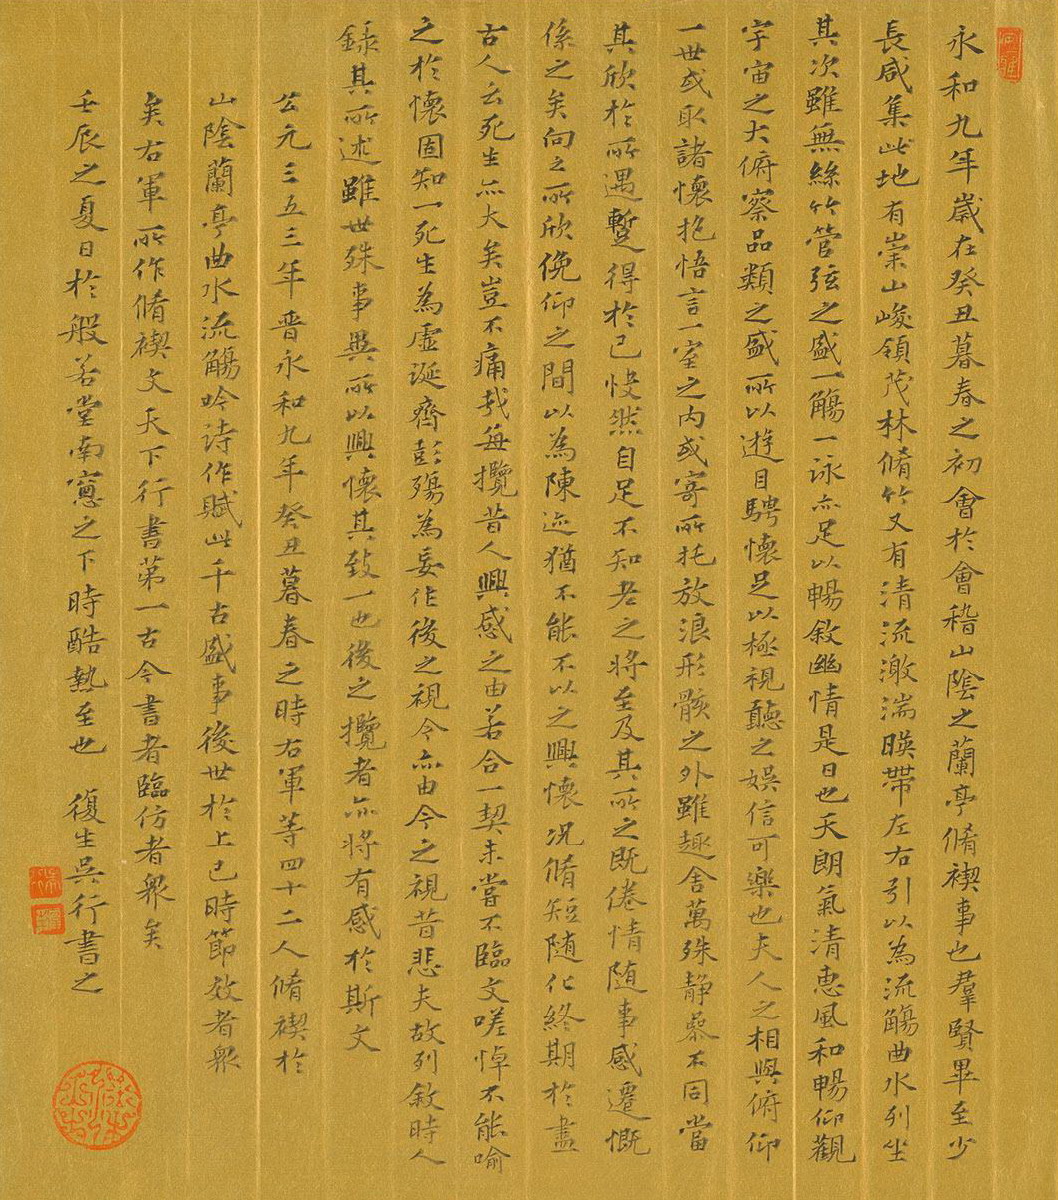 永和九年歲在癸丑暮春之初會於會稽山陰之蘭亭脩禊事也羣賢畢至少
長咸集此地有崇山峻領茂林脩竹又有清流激湍暎帶左右引以為流觴曲水列坐
其次雖無絲竹管弦之盛一觴一詠亦足以暢敘幽情是日也天朗氣清惠風和暢仰觀
宇宙之大俯察品類之盛所以遊目騁懷足以極視聽之娛信可樂也夫人之相與俯仰
一世或取諸懷抱悟言一室之內或寄所托放浪形骸之外雖趣舍萬殊静躁不同當
其欣於所遇蹔得於己怏然自足不知老之將至及其所之既倦情随事感遷慨
係之矣向之所欣俛仰之間以為陳迹猶不能不以之興懷況脩短随化終期於盡
古人云死生亦大矣豈不痛哉每攬昔人興感之由若合一契未嘗不臨文嗟悼不能喻
之於懷固知一死生為虛誕齊彭殤為妄作後之視今亦由今之視昔悲夫故列敘時人
錄其所述雖世殊事異所以興懷其致一也後之攬者亦將有感於斯文
公元三五三年晉永和九年癸丑暮春之時右軍等四十二人脩禊於
山陰蘭亭曲水流觴吟詩作賦此千古盛事後世於上巳時節效者衆
矣右軍所作脩禊文天下行書第一古今書者臨仿者衆矣
壬辰之夏日於般若堂南窻之下時酷熱至也 復生吳行書之